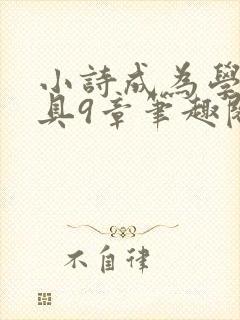 小詩成為學
具9章筆趣閱
不自律